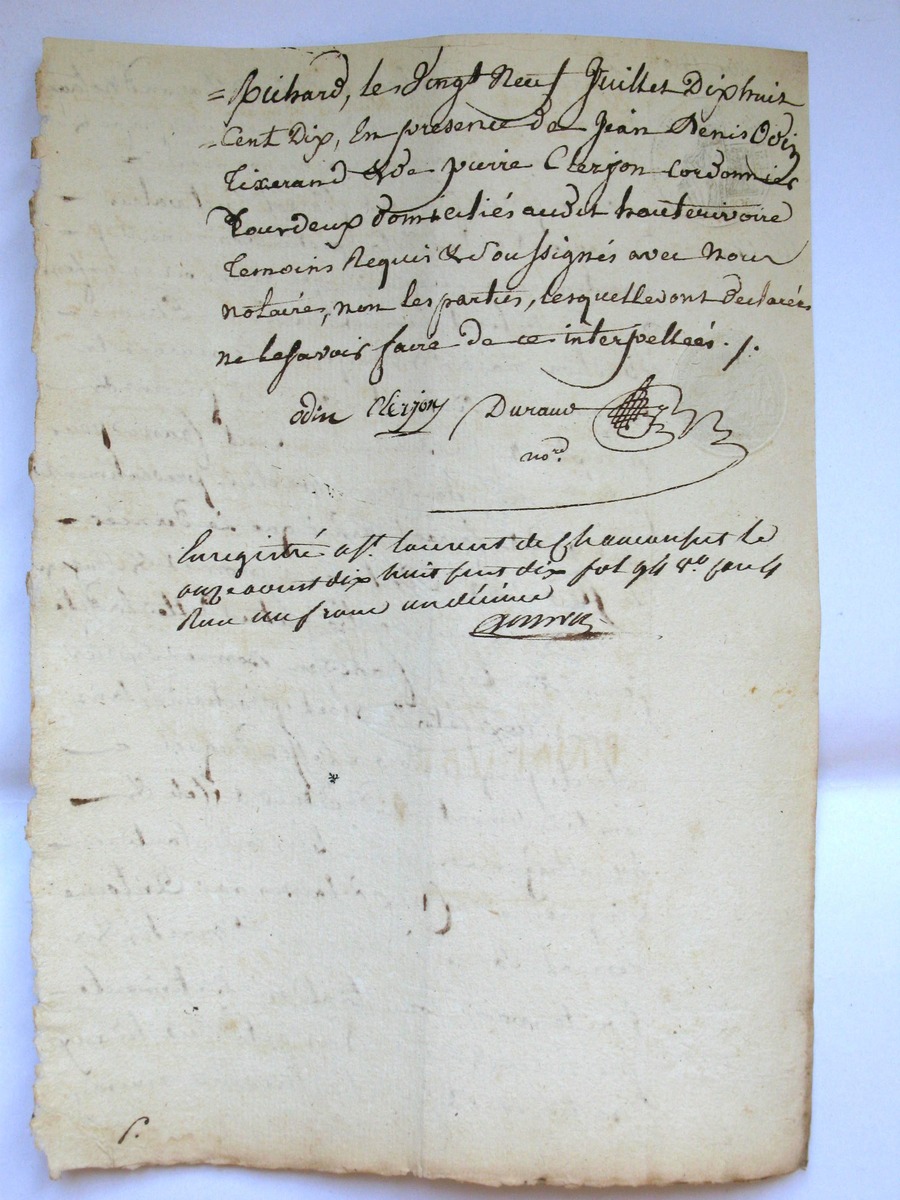 =Richard, le Vingt Neuf Juillet Dix huit
=Cent Dix, En presence de Jean Denis Odin
Tixerand & de pierre Clerjon Cordonnier
Tous deux domiciliés audit hauterivoire
Temoins Requis & soussignés avec Nous
notaire, non les parties, lesquelles ont declarées
ne le savoir faire de ce interpellées ./.
odin Clerjon Durand
no.re
Enregistré a St. laurent de Chamousset le
onze aoust dix huit cent dix fol 94 vo Case 4
Reçu un franc un décime